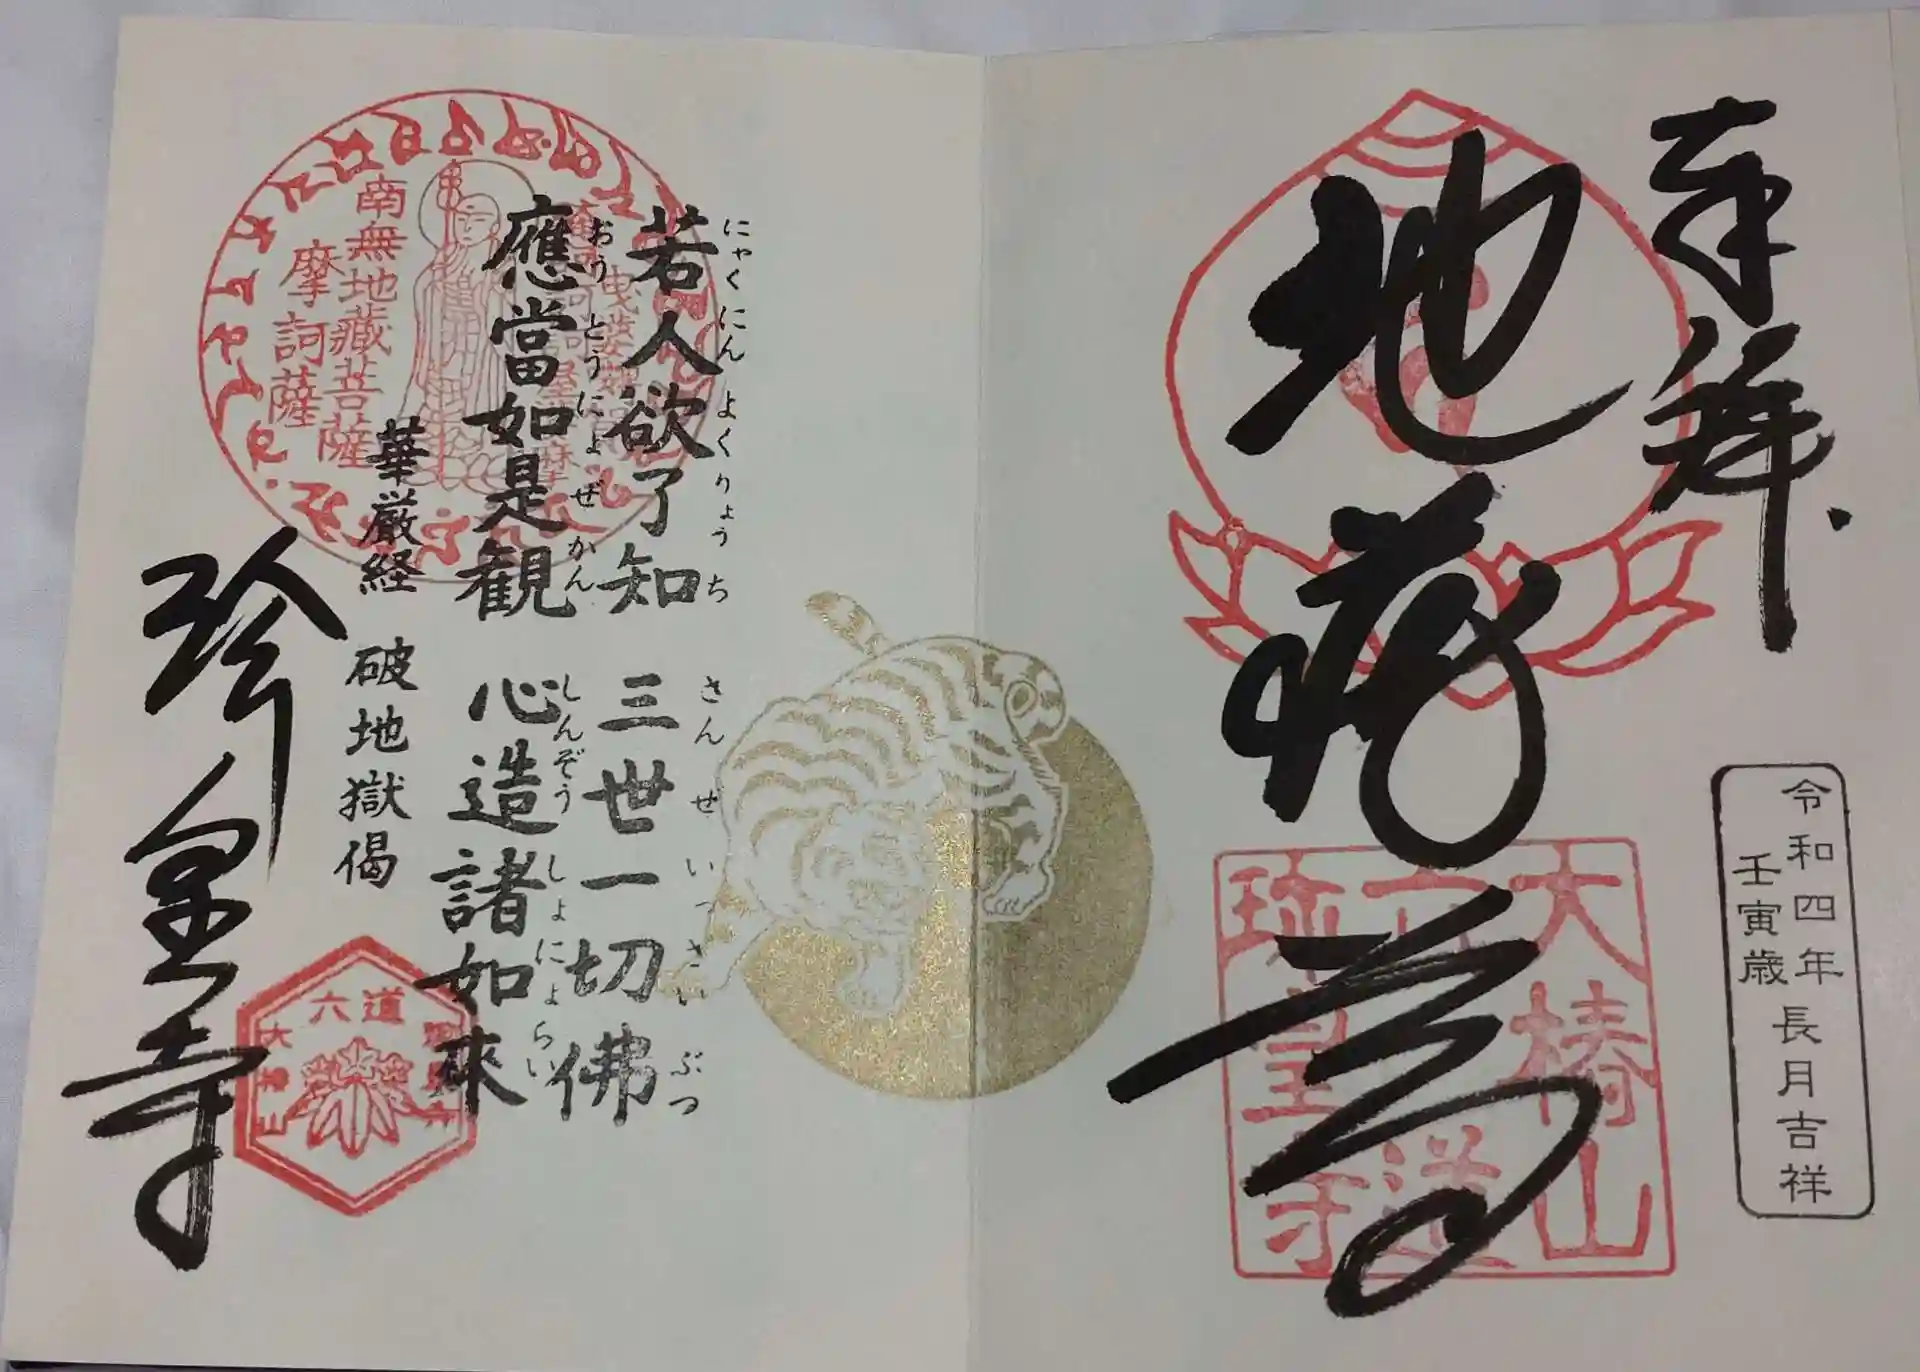 奉拝
地蔵尊
令和四年 長月吉祥
壬寅歳
大椿山
六道
珍皇寺
若人欲了知 三世一切佛
にゃくにんよくりょうち さんせいっさいぶつ
應當如是観 心造諸如來
おうとうにょぜかん しんぞうしょにょらい
華厳経 破地獄偈
南無地蔵菩薩
摩訶薩
六道
珍皇寺